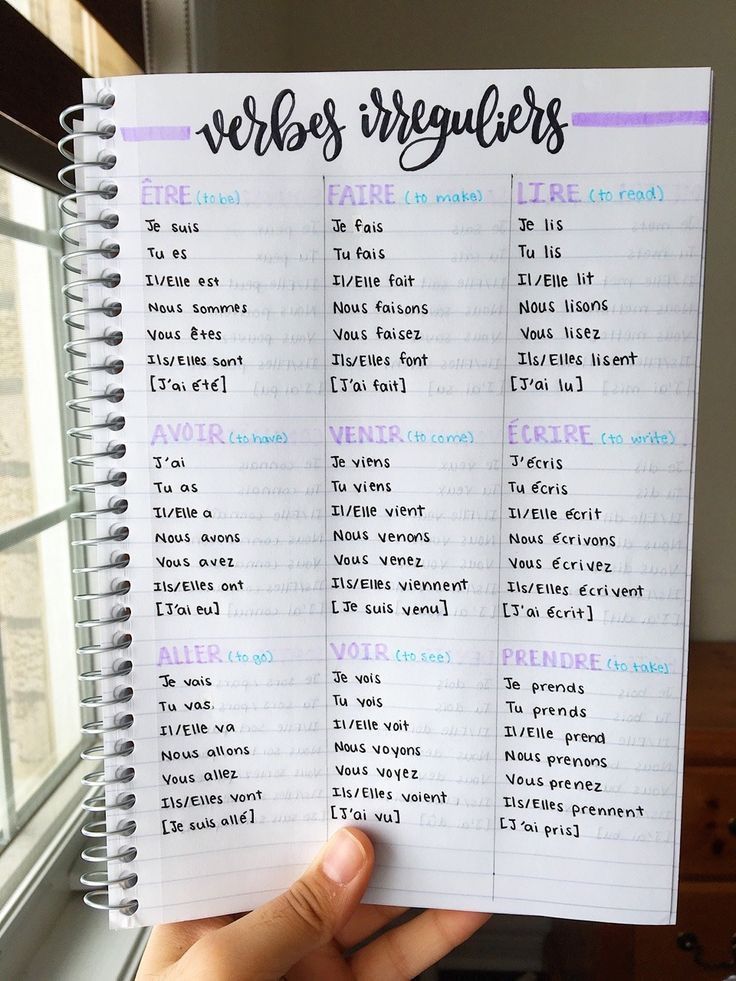 verbes irreguliers
ÊTRE (to be)
Je suis
Tu es
Il/Elle est
Nous sommes
Vous êtes
Ils/Elles sont
[J'ai été]
AVOIR (to have)
J'ai
Tu as
Il/Elle a
Nous avons
Vous avez
Ils/Elles ont
[J'ai eu]
ALLER (to go)
Je vais
Tu vas
Il/Elle va
Nous allons
Vous allez
Ils/Elles vont
[Je suis allé]
FAIRE (to make)
Je fais
Tu fais
Il/Elle fait
Nous faisons
Vous faisez
Ils/Elles font
[J'ai fait]
VENIR (to come)
Je viens
Tu viens
Il/Elle vient
Nous venons
Vous venez
Ils/Elles viennent
[Je suis venu]
VOIR (to see)
Je vois
Tu vois
Il/Elle voit
Nous voyons
Vous voyez
Ils/Elles voient
[J'ai vu]
LIRE (to read)
Je lis
Tu lis
Il/Elle lit
Nous lisons
Vous lisez
Ils/Elles lisent
[J'ai lu]
ÉCRIRE (to write)
J'écris
Tu écris
Il/Elle écrit
Nous écrivons
Vous écrivez
Ils/Elles écrivent
[J'ai écrit]
PRENDRE (to take)
Je prends
Tu prends
Il/Elle prend
Nous prenons
Vous prenez
Ils/Elles prennent
[J'ai pris]